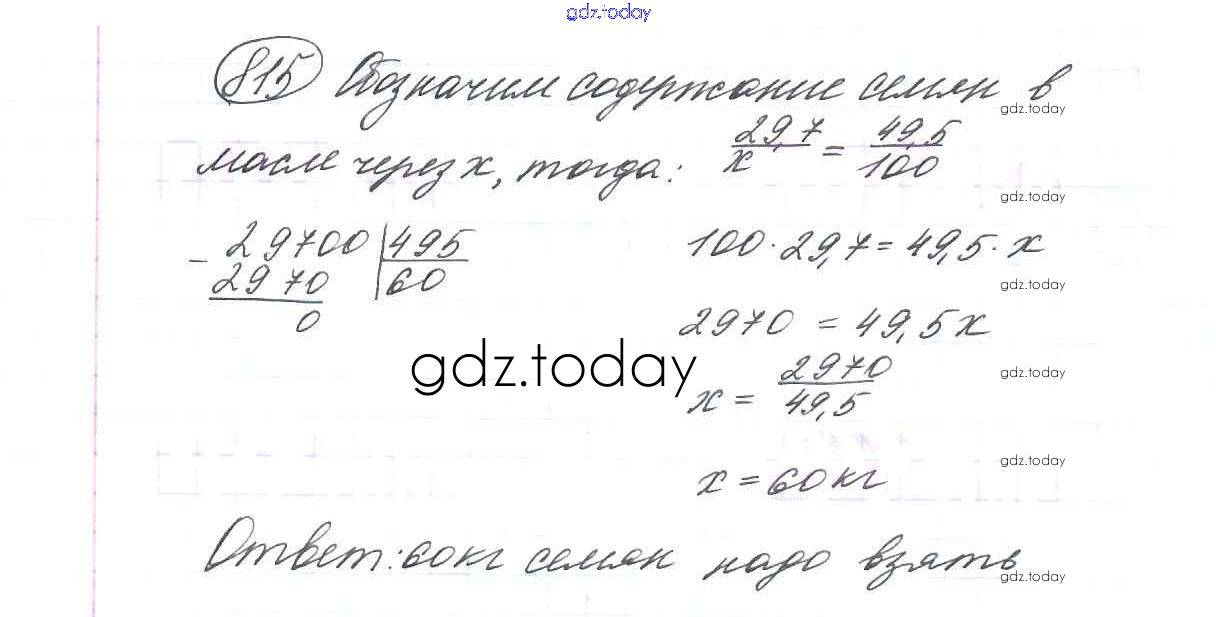 gdz.today
815 Обозначим содержание семян в
gdz.today
масле через x, тогда: 29,7/x = 49,5/100
gdz.today
- 29700 | 495
2970 | 60
0
100 · 29,7 = 49,5 · x
gdz.today
2970 = 49,5x
gdz.today
gdz.today
x = 2970/49,5
gdz.today
x = 60 кг
Ответ: 60 кг семян надо взять
gdz.today